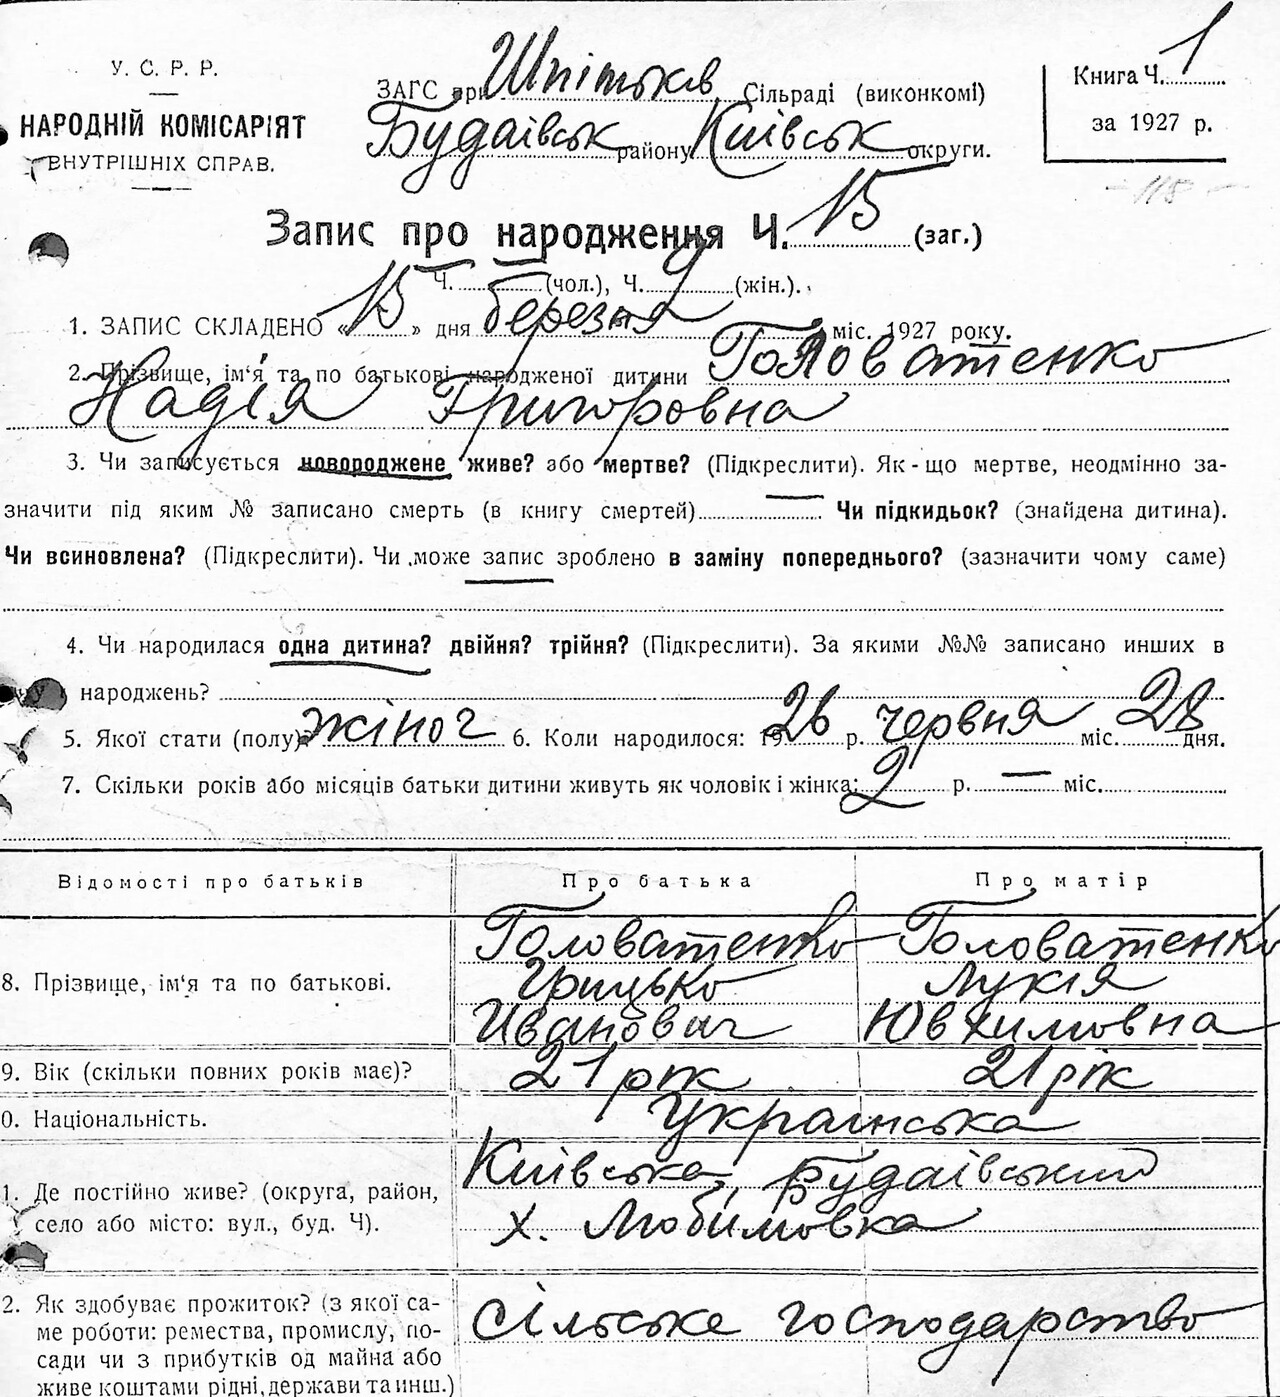 У. С. Р. Р.
НАРОДНІЙ КОМІСАРІЯТ
ВНУТРІШНІХ СПРАВ.
ЗАГС при Шпітьків Сільраді (виконкомі)
Будаївськ району Київськ округи.
Книга Ч. 1
за 1927 р.
- 118 -
Запис про народження Ч. 15 (заг.)
Ч. — (чол.), Ч. 9 (жін.).
1. ЗАПИС СКЛАДЕНО « 15 » дня березня міс. 1927 року.
2. Прізвище, ім'я та по батькові народженої дитини Головатенко
Надія Григоровна
3. Чи записується новороджене живе? або мертве? (Підкреслити). Як-що мертве, неодмінно за-
значити під яким № записано смерть (в книгу смертей) — Чи підкидьок? (знайдена дитина).
Чи всиновлена? (Підкреслити). Чи може запис зроблено в заміну попереднього? (зазначити чому саме)
4. Чи народилася одна дитина? двійня? трійня? (Підкреслити). За якими №№ записано инших в
народжень?
5. Якої стати (полу)? жіноч 6. Коли народилося: 1926 р. червня міс. 28 дня.
7. Скільки років або місяців батьки дитини живуть як чоловік і жінка: 2 р. — міс.
Відомості про батьків Про батька Про матір
8. Прізвище, ім'я та по батькові.
Головатенко Головатенко
Грицько Лукія
Иванович Ювхимовна
9. Вік (скільки повних років має)? 21 рік 21 рік
0. Національність. Українська
1. Де постійно живе? (округа, район,
село або місто: вул., буд. Ч).
Київська, Будаївський
х. Любимовка
2. Як здобуває прожиток? (з якої са-
ме роботи: ремества, промислу, по-
сади чи з прибутків од майна або
живе коштами рідні, держави та инш.)
сільське господарство